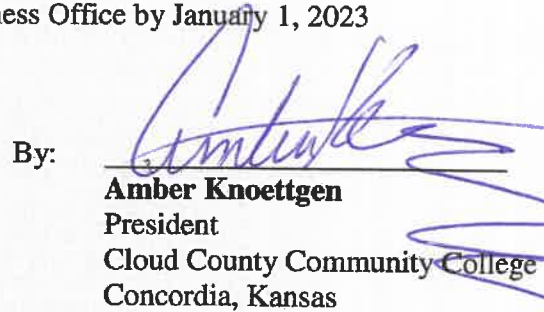 ness Office by January 1, 2023
By:
Amber Knoettgen
President
Cloud County Community College
Concordia, Kansas